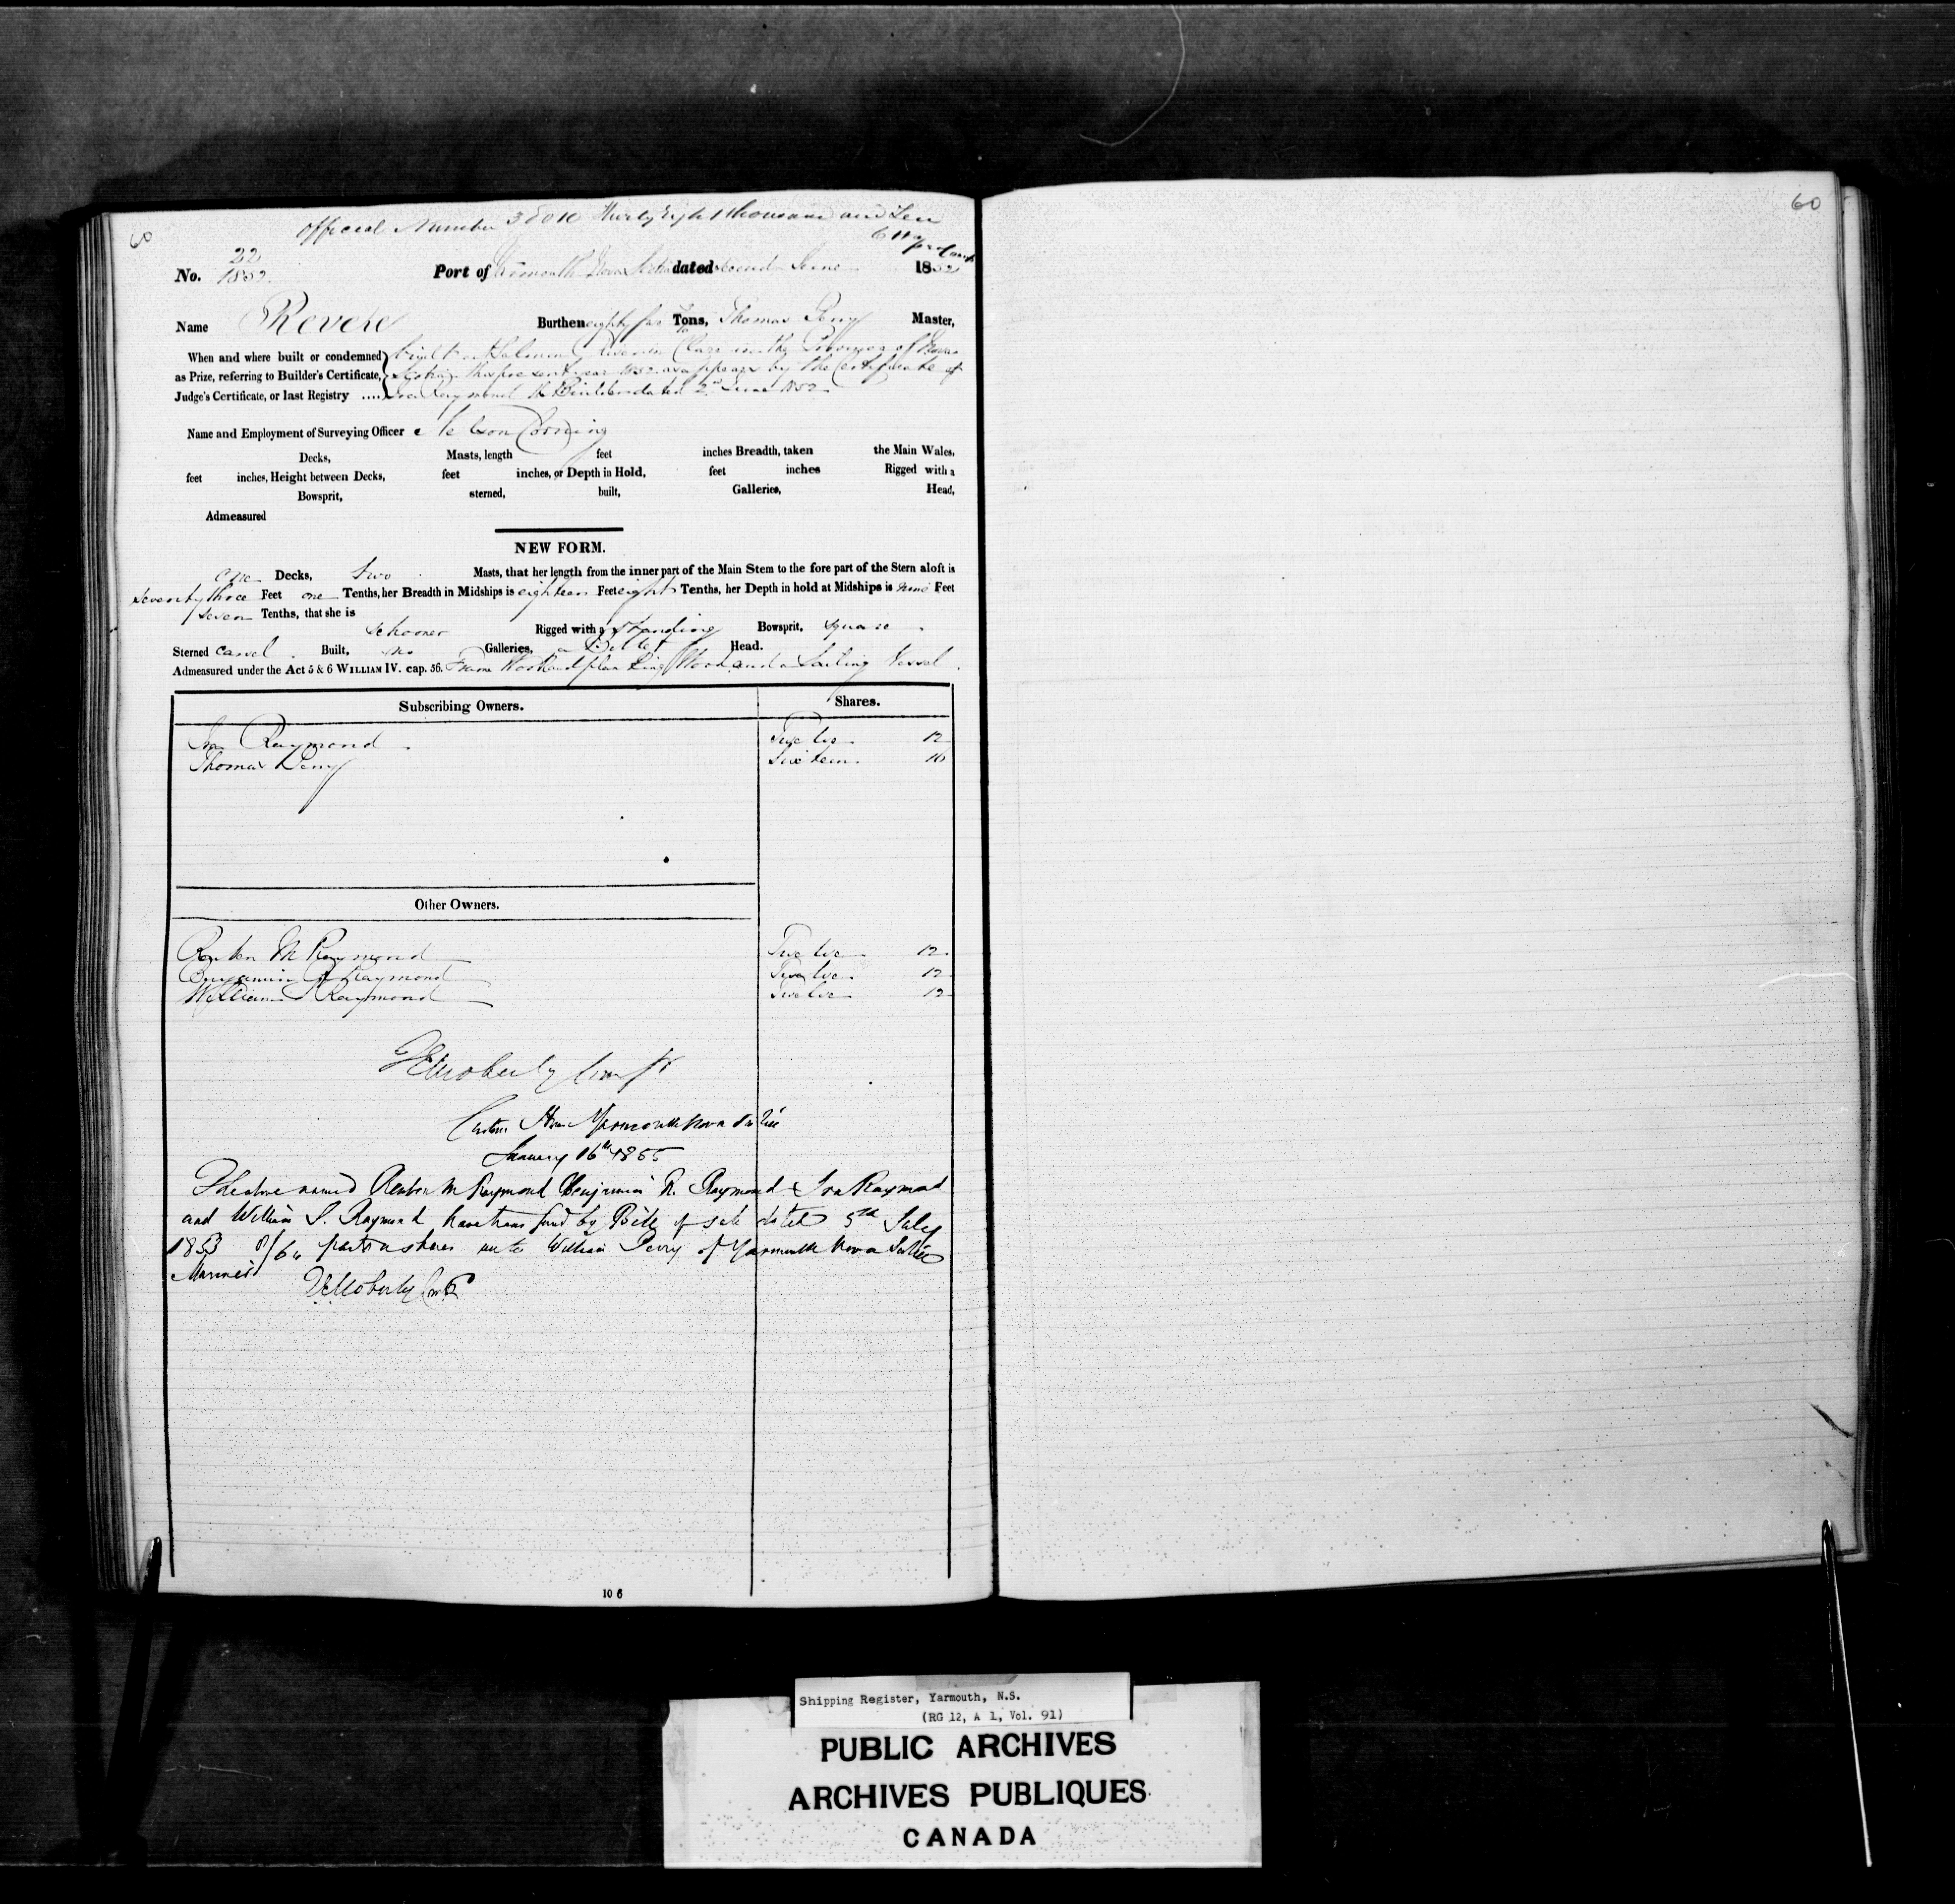 60
60
Official Number 38010 Thirty Eight thousand and Ten
No. 22 1852 Port of Yarmouth Nova Scotia dated second June 1852
Name Revere Burthen eighty Tons, Thomas Perry Master,
When and where built or condemned built at Salmon River in Clare in the Province of Nova
as Prize, referring to Builder's Certificate, Scotia this present year 1852 as appears by the Certificate of
Judge's Certificate, or last Registry .... Ira Raymond the Builder dated 2nd June 1852
Name and Employment of Surveying Officer Nelson Corning
Decks, Masts, length feet inches Breadth, taken the Main Wales,
feet inches, Height between Decks, feet inches, or Depth in Hold, feet inches Rigged with a
Bowsprit, sterned, built, Galleries, Head,
Admeasured
NEW FORM.
one Decks, two Masts, that her length from the inner part of the Main Stem to the fore part of the Stern aloft is
seventy three Feet one Tenths, her Breadth in Midships is eighteen Feet eight Tenths, her Depth in hold at Midships is nine Feet
seven Tenths, that she is
schooner Rigged with a standing Bowsprit, square
Sterned carvel Built, no Galleries, a Billet Head.
Admeasured under the Act 5 & 6 WILLIAM IV. cap. 56. Frame Wood and planking Wood and a Sailing Vessel
Subscribing Owners. Shares.
Ira Raymond Twelve 12
Thomas Perry Sixteen 16
Other Owners.
Reuben M Raymond Twelve 12
Benjamin R Raymond Twelve 12
William S Raymond Twelve 12
Moberly
Custom House Yarmouth Nova Scotia
January 16th 1855
The above named Reuben M Raymond Benjamin R. Raymond & Ira Raymond
and William S. Raymond have transferred by Bill of sale dated 5th July
1853 8/64 parts or shares unto William Perry of Yarmouth Nova Scotia
Mariner Moberly
10 6
Shipping Register, Yarmouth, N.S.
(RG 12, A 1, Vol. 91)
PUBLIC ARCHIVES
ARCHIVES PUBLIQUES
CANADA